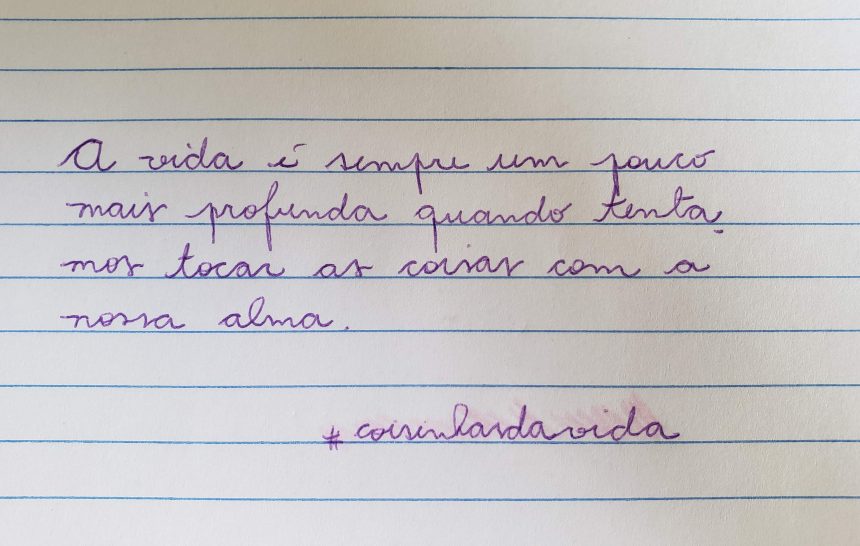 A vida é sempre um pouco
mais profunda quando tenta-
mos tocar as coisas com a
nossa alma.
#coisinhasdavida